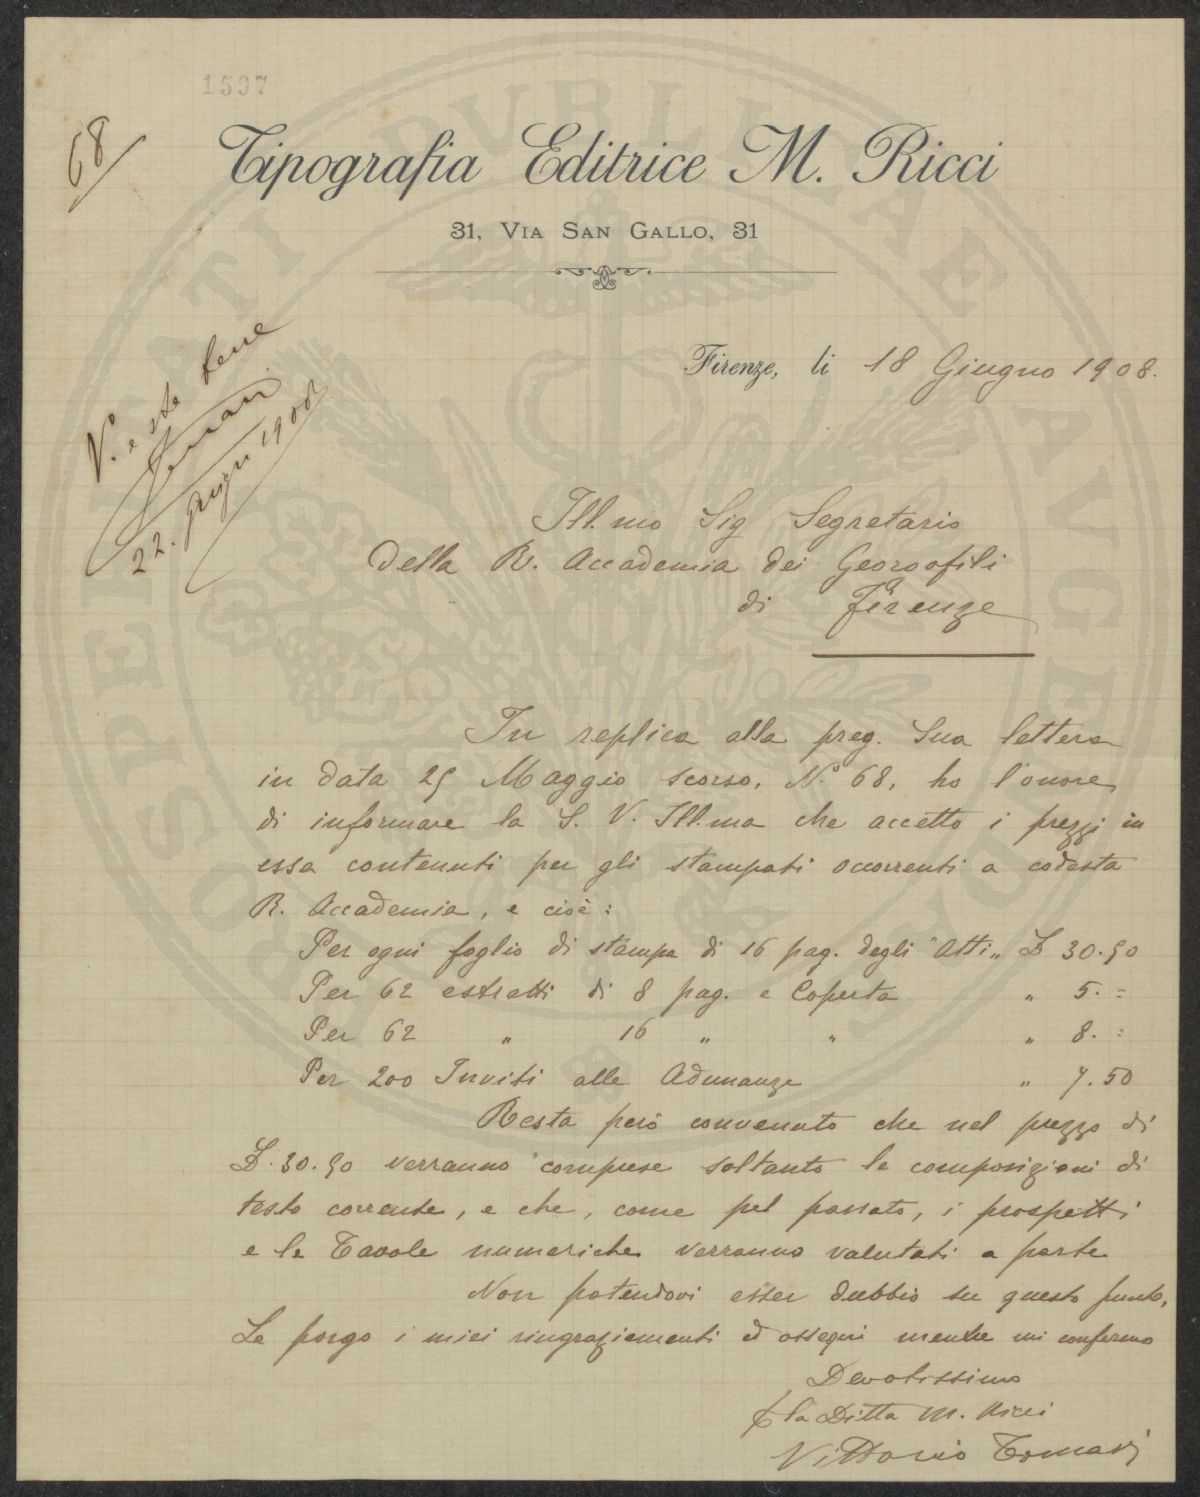 1597
68
Tipografia Editrice M. Ricci
31, Via San Gallo, 31
V.° e sta bene
22. giugno 1908
Firenze, li 18 Giugno 1908.
Ill.mo Sig Segretario
Della R. Accademia dei Georgofili
di Firenze
In replica alla preg. Sua lettera
in data 25 Maggio scorso, N.° 68, ho l'onore
di informare la S. V. Ill.ma che accetto i prezzi in
essa contenuti per gli stampati occorrenti a codesta
R. Accademia, e cioè:
Per ogni foglio di stampa di 16 pag. degli "Atti„ L 30.50
Per 62 estratti di 8 pag. e Coperta " 5.=
Per 62 " 16 " " " 8.=
Per 200 Inviti alle Adunanze " 7.50
Resta però convenuto che nel prezzo di
L. 30.50 verranno comprese soltanto le composizioni di
testo corrente, e che, come pel passato, i prospetti
e le Tavole numeriche verranno valutati a parte
Non potendovi esser dubbio su questo punto,
Le porgo i miei ringraziamenti ed ossequi mentre mi confermo
Devotissimo
p la Ditta M. Ricci
Vittorio Tomasi